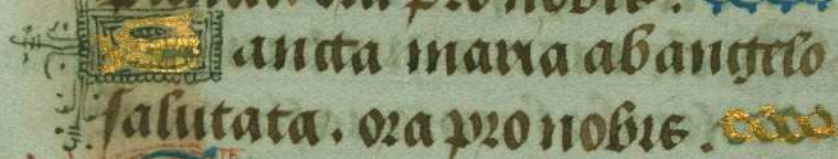 pro nobis.
Sancta maria ab angelo
salutata. ora pro nobis.